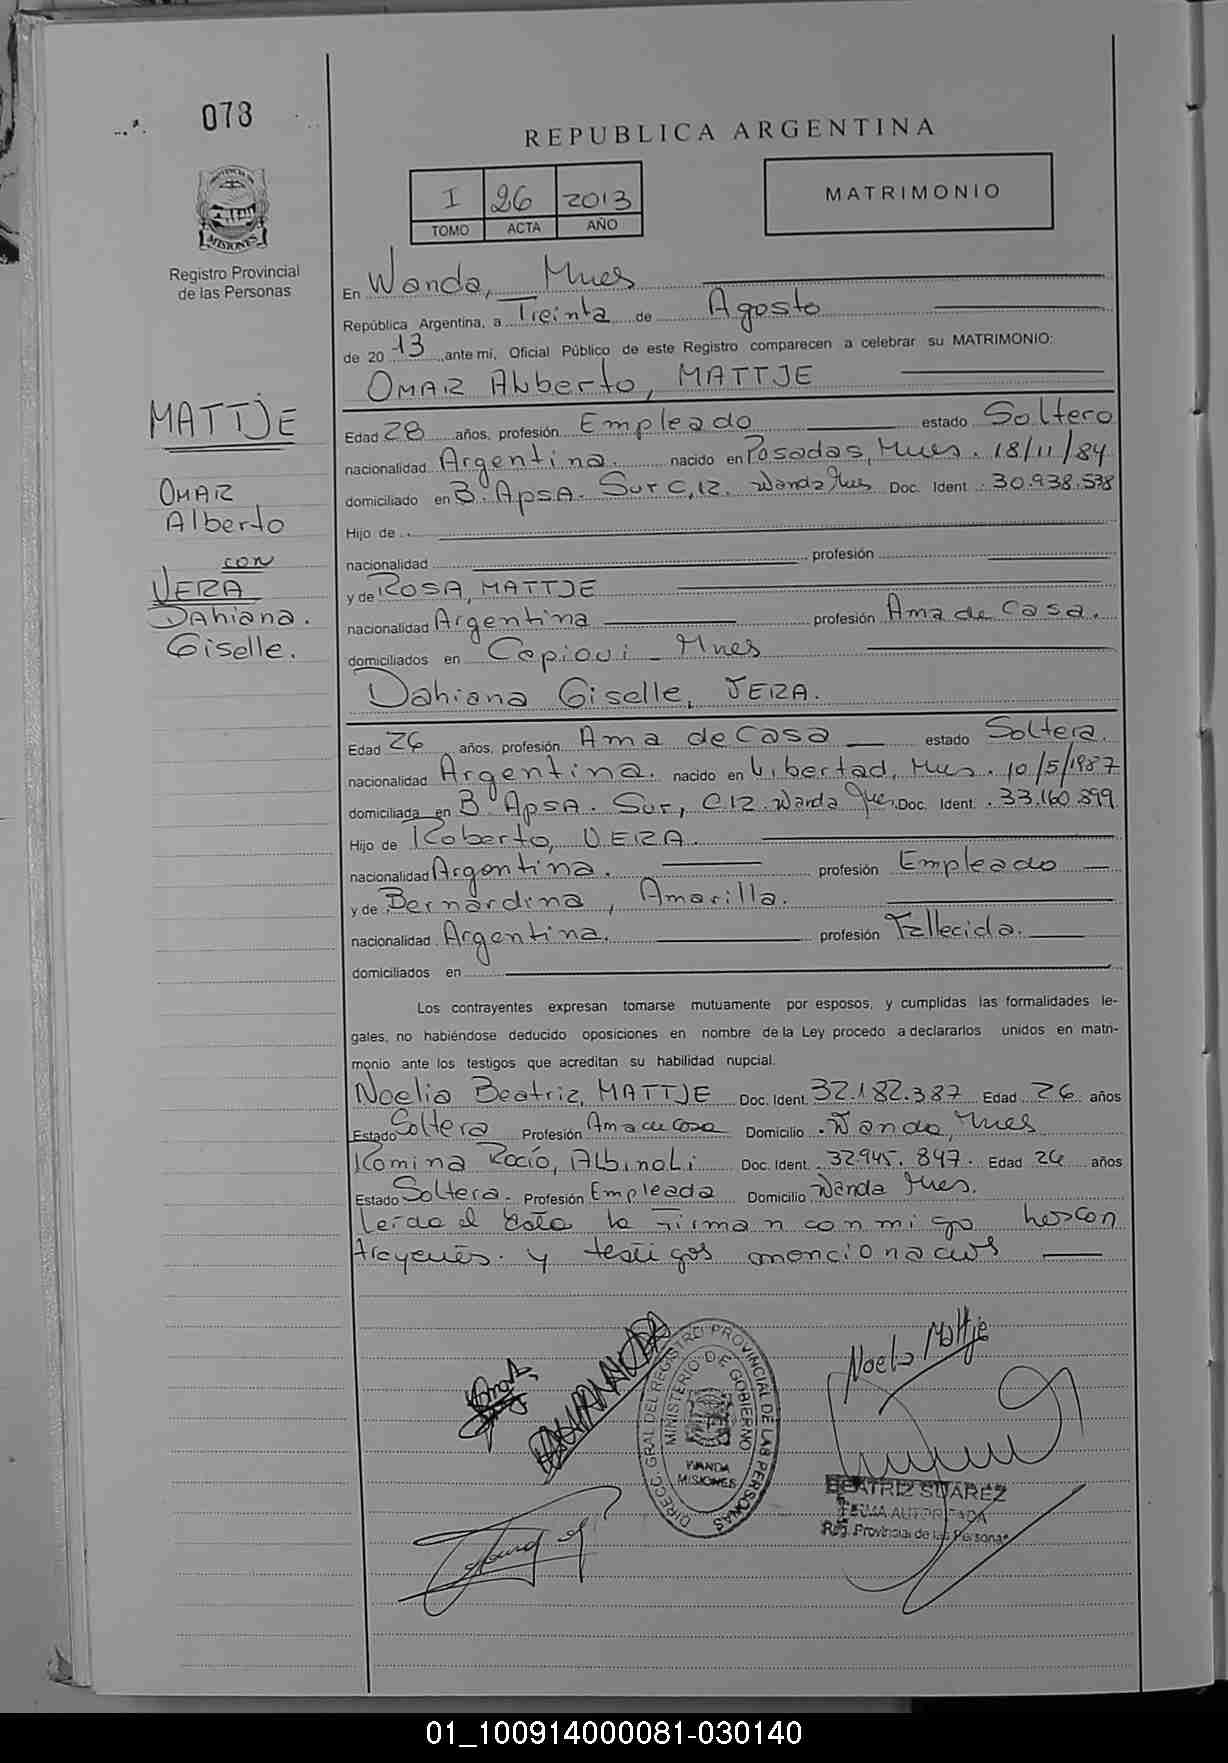 073
REPUBLICA ARGENTINA
I 26 2013
TOMO ACTA AÑO
MATRIMONIO
PROVINCIA DE
MISIONES
Registro Provincial
de las Personas
En Wanda, Mnes
República Argentina, a Treinta de Agosto
de 20 13 ante mi, Oficial Público de este Registro comparecen a celebrar su MATRIMONIO:
OMAR Alberto, MATTJE
MATTJE
OMAR
Alberto
con
VERA
DAhiana.
Giselle.
Edad 28 años, profesión Empleado estado Soltero
nacionalidad Argentina. nacido en Posadas, Mnes. 18/11/84
domiciliado en B. ApSA. Sur C,12. Wanda Mnes Doc. Ident. 30.938.538
Hijo de
nacionalidad profesión
y de ROSA, MATTJE
nacionalidad Argentina profesión Ama de Casa.
domiciliados en Capiovi - Mnes
Dahiana Giselle, VERA.
Edad 26 años, profesión Ama de Casa estado Soltera.
nacionalidad Argentina. nacido en Libertad, Mnes. 10/5/1987
domiciliada en B. ApSA. Sur, C12. Wanda Doc. Ident. 33.160.399
Hijo de Roberto, VERA.
nacionalidad Argentina. profesión Empleado
y de Bernardina, Amarilla.
nacionalidad Argentina. profesión Fallecida.
domiciliados en
Los contrayentes expresan tomarse mutuamente por esposos, y cumplidas las formalidades le-
gales, no habiéndose deducido oposiciones en nombre de la Ley procedo a declararlos unidos en matri-
monio ante los testigos que acreditan su habilidad nupcial.
Noelia Beatriz, MATTJE Doc. Ident. 32.182.387 Edad 26 años
Estado Soltera Profesión Ama de Casa Domicilio Wanda, Mnes
Romina Rocío, Albinoli Doc. Ident. 32945.847. Edad 26 años
Estado Soltera. Profesión Empleada Domicilio Wanda Mnes.
Leída el la Firman conmigo los con
trayentes. y testigos mencionados
Noelia Mattje
DIRECC. GRAL DEL REGISTRO PROVINCIAL DE LAS PERSONAS
MINISTERIO DE GOBIERNO
WANDA
MISIONES
BEATRIZ SUAREZ
FIRMA AUTORIZADA
Reg. Provincial de las Personas
01_100914000081-030140